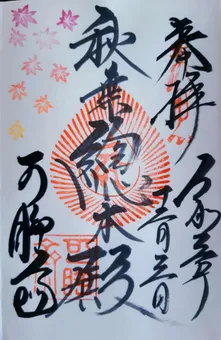 奉拝
令和三年
十二月三日
秋葉総本殿
可睡斎